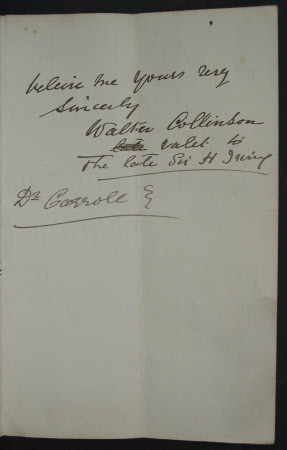 believe me yours very
sincerely
Walter Collinson
late valet to
the late Sir H Irving
Dr Carroll }